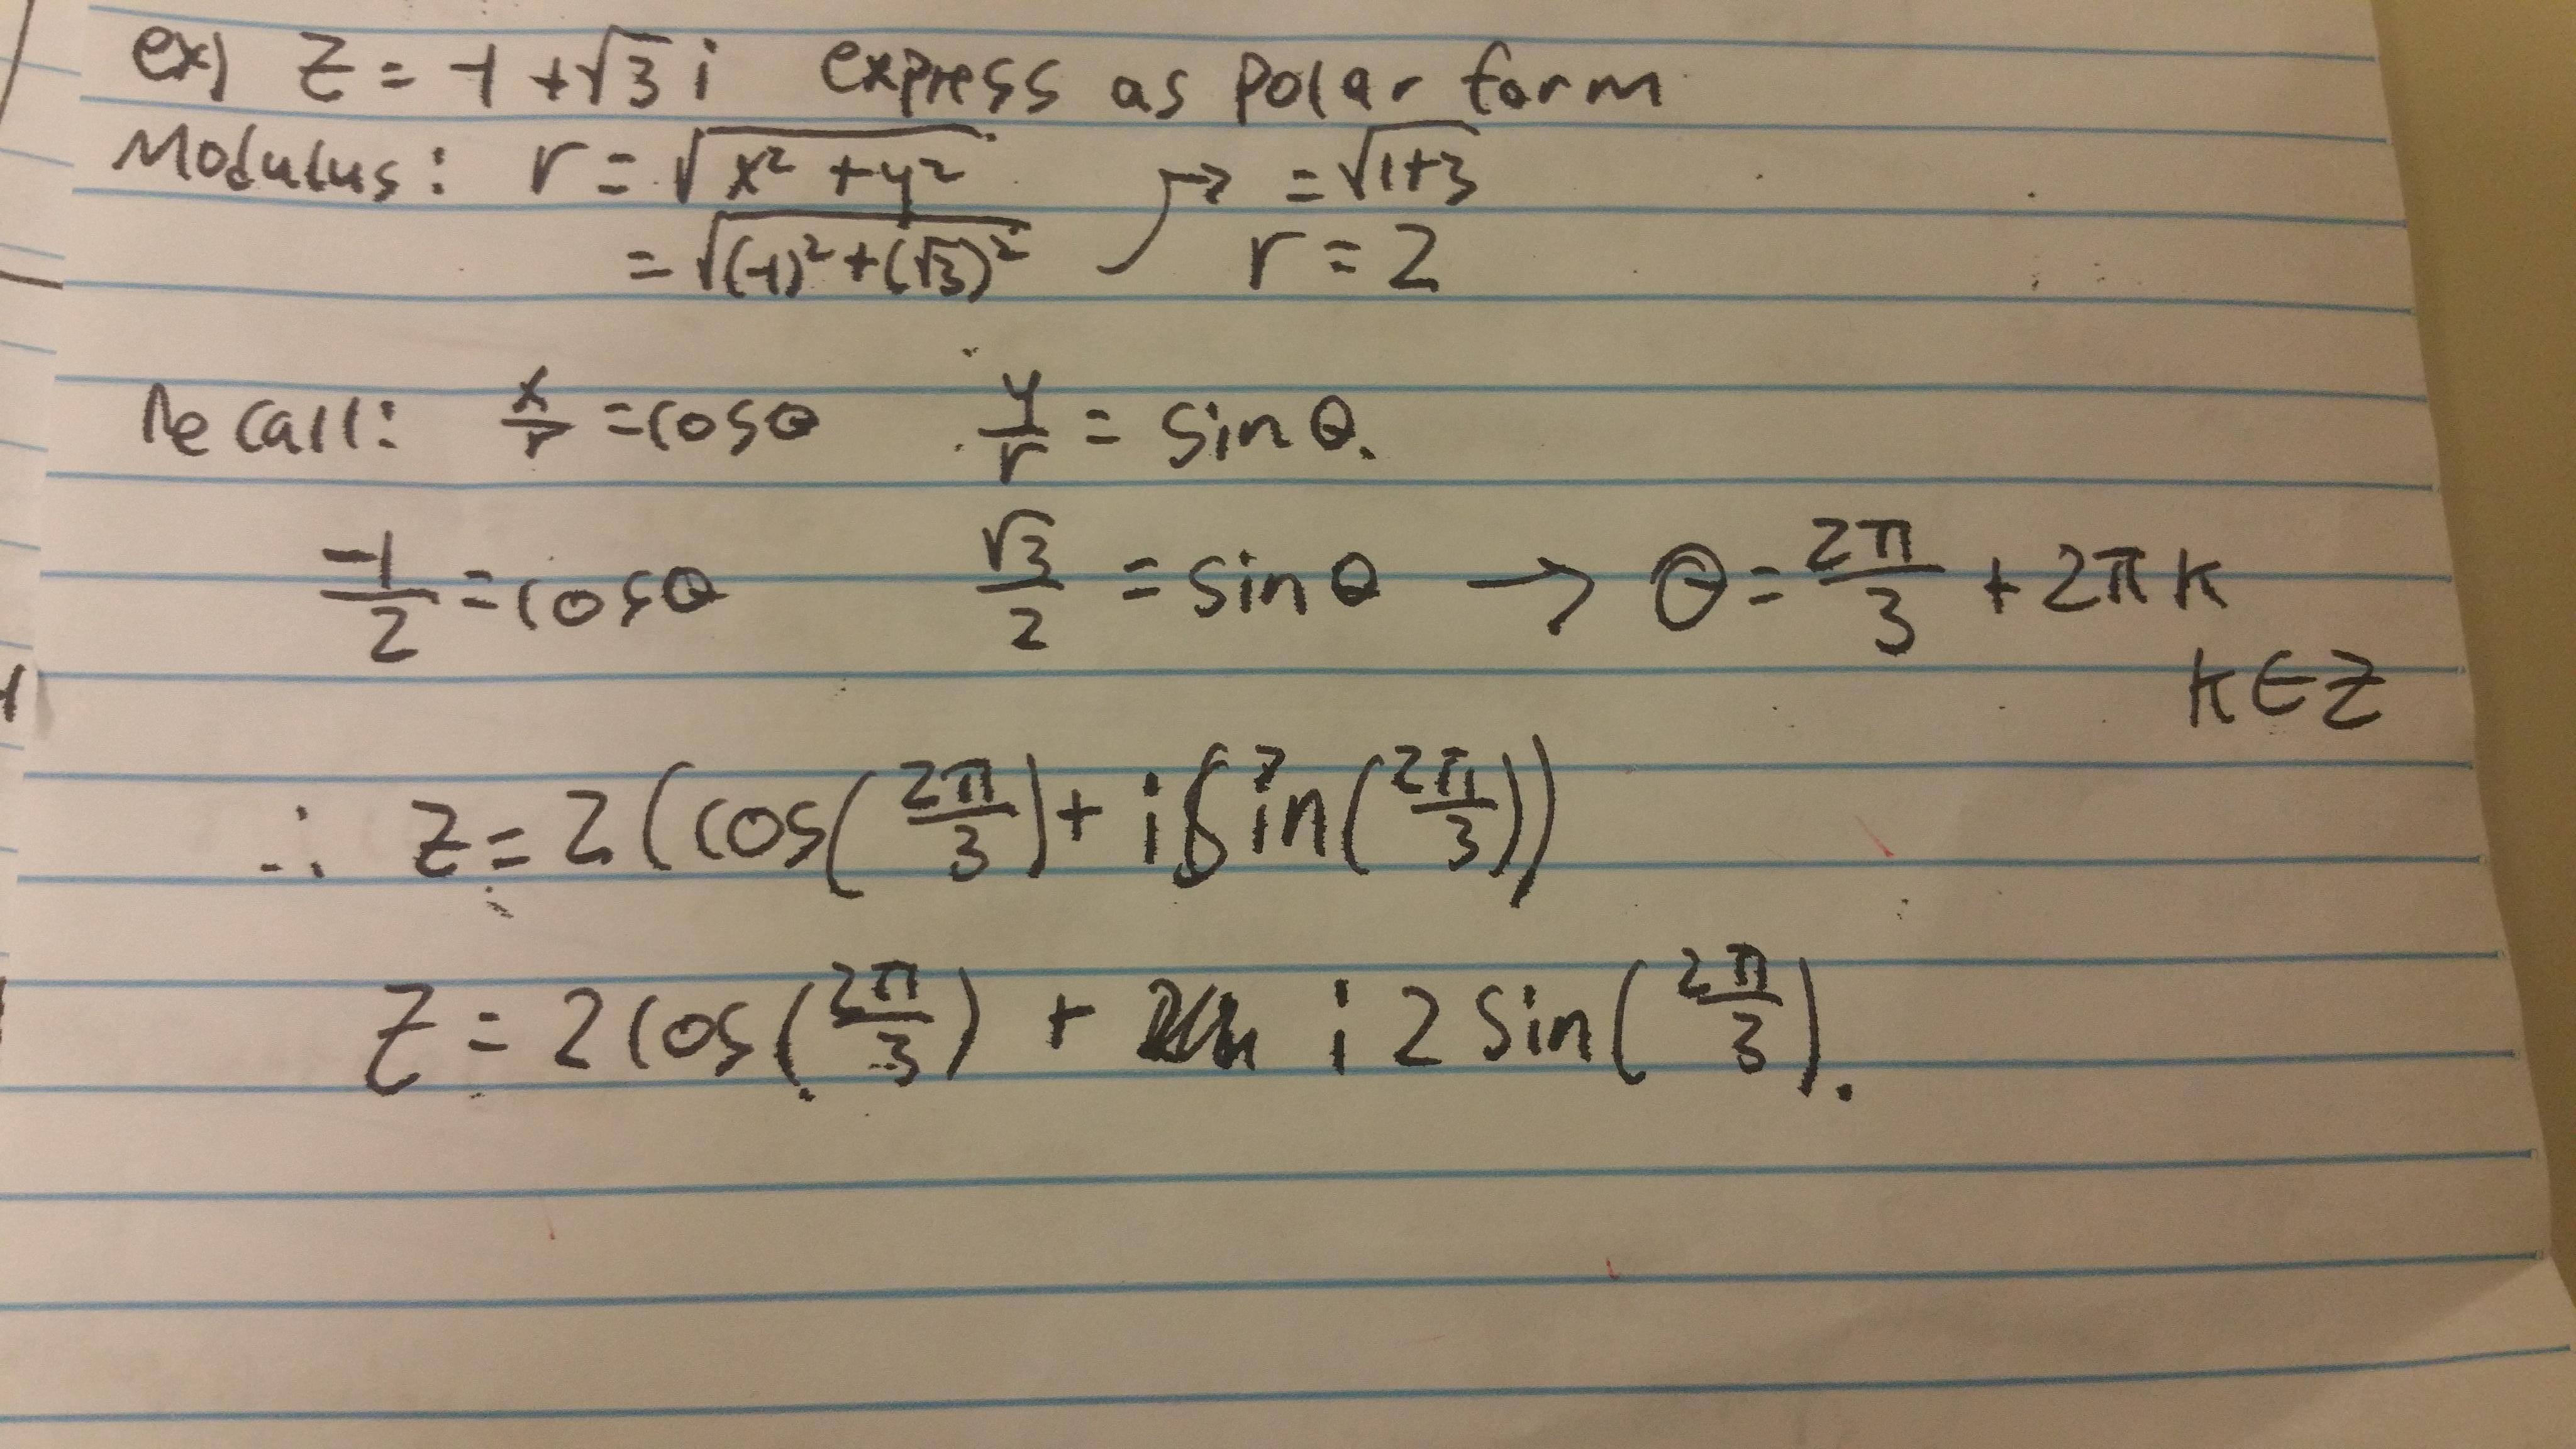 ex) z = -1 + √3 i express as polar form
Modulus: r = √(x² + y²) → = √(1+3)
= √((-1)² + (√3)²) r = 2
Recall: x/r = cosθ y/r = sinθ.
-1/2 = cosθ √3/2 = sinθ → θ = 2π/3 + 2πk
k ∈ Z
∴ z = 2(cos(2π/3) + i sin(2π/3))
z = 2cos(2π/3) + i 2 sin(2π/3).